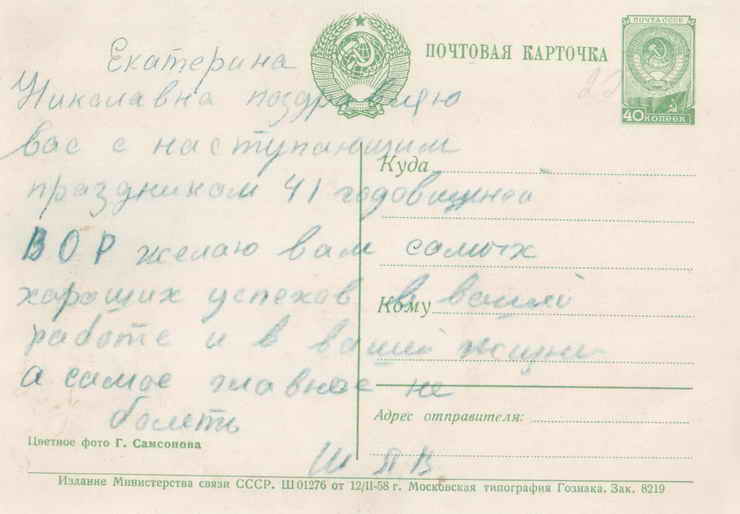 ПОЧТОВАЯ КАРТОЧКА
ПОЧТА СССР
40 КОПЕЕК
Екатерина
Николавна поздравляю
вас с наступающим
праздником 41 годовщиной
ВОР желаю вам самых
хароших успехов в вашей
работе и в вашей жизни
а самое главное не
болеть
Ш Я В
Куда
Кому
Адрес отправителя:
Цветное фото Г. Самсонова
Издание Министерства связи СССР. Ш 01276 от 12/II-58 г. Московская типография Гознака. Зак. 8219